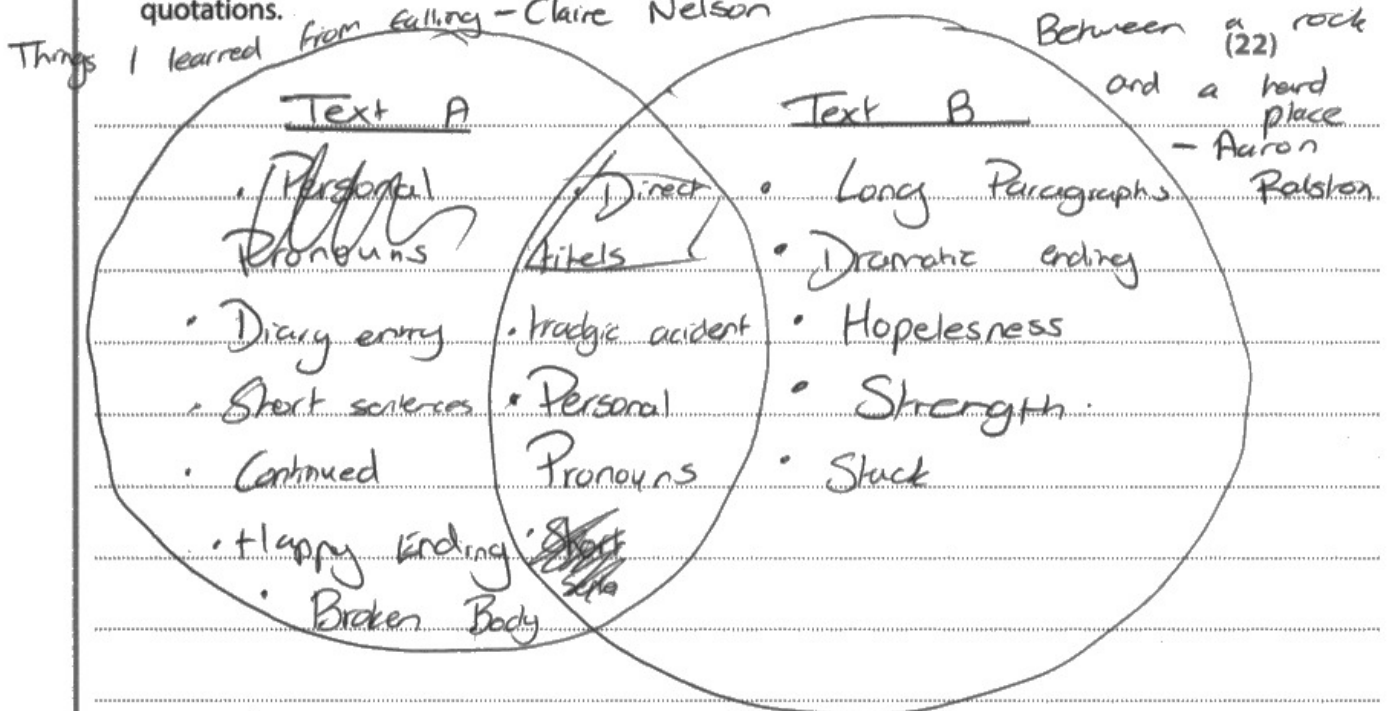 quotations.
Things I learned from falling - Claire Nelson
Between a rock
(22)
and a hard
place
- Aaron
Ralston
Text A
• Personal
Pronouns
• Diary entry
• Short sentences
• Continued
• Happy Ending
• Broken Body
• Direct
titels
• tradgic acident
• Personal
Pronouns
• Short
Text B
• Long Paragraphs
• Dramatic ending
• Hopelesness
• Strength.
• Stuck